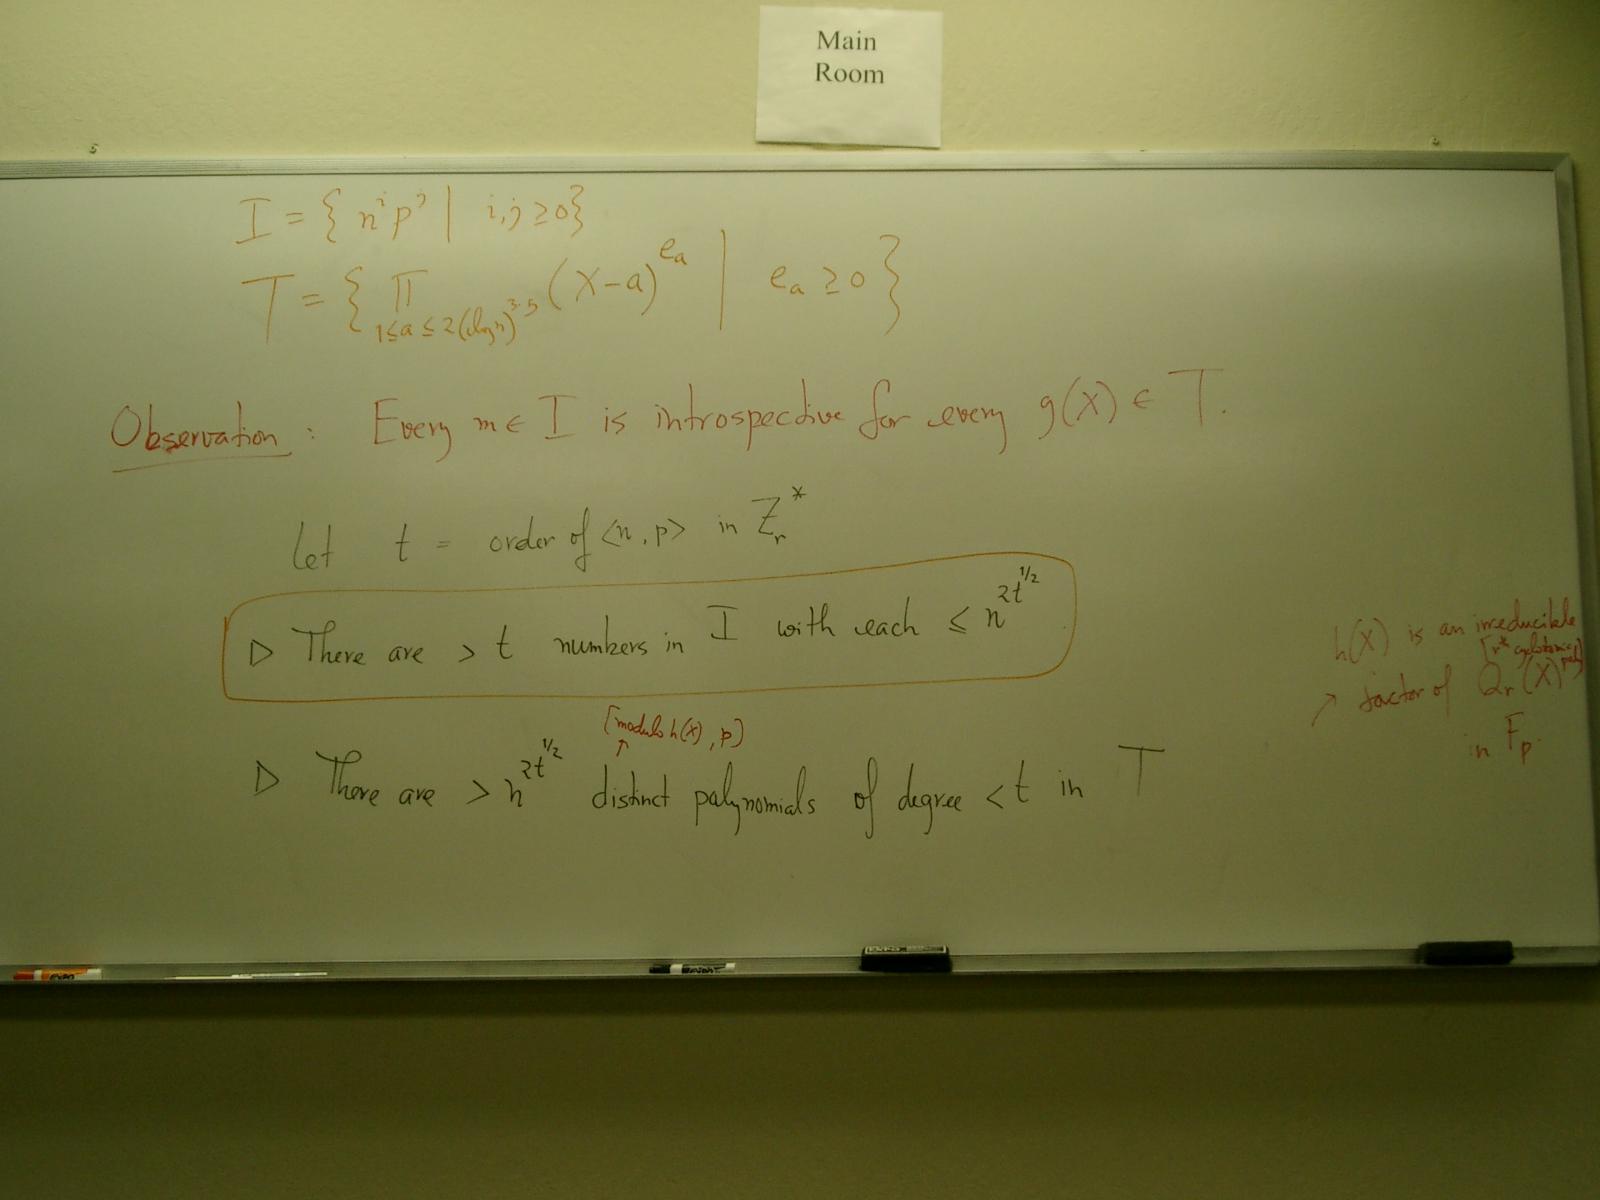 Main
Room
I = { n^i p^j | i,j ≥ 0 }
T = { ∏_{1≤a≤2(log n)^{3.5}} (X-a)^{e_a} | e_a ≥ 0 }
Observation : Every m ∈ I is introspective for every g(X) ∈ T.
Let t = order of <n, p> in Z_r^*
▷ There are > t numbers in I with each ≤ n^{2t^{1/2}}
[modulo h(X), p]
↑
▷ There are > n^{2t^{1/2}} distinct polynomials of degree < t in T
h(X) is an irreducible
[r^th cyclotomic poly]
↗ factor of Q_r(X)
in F_p.
EXPO